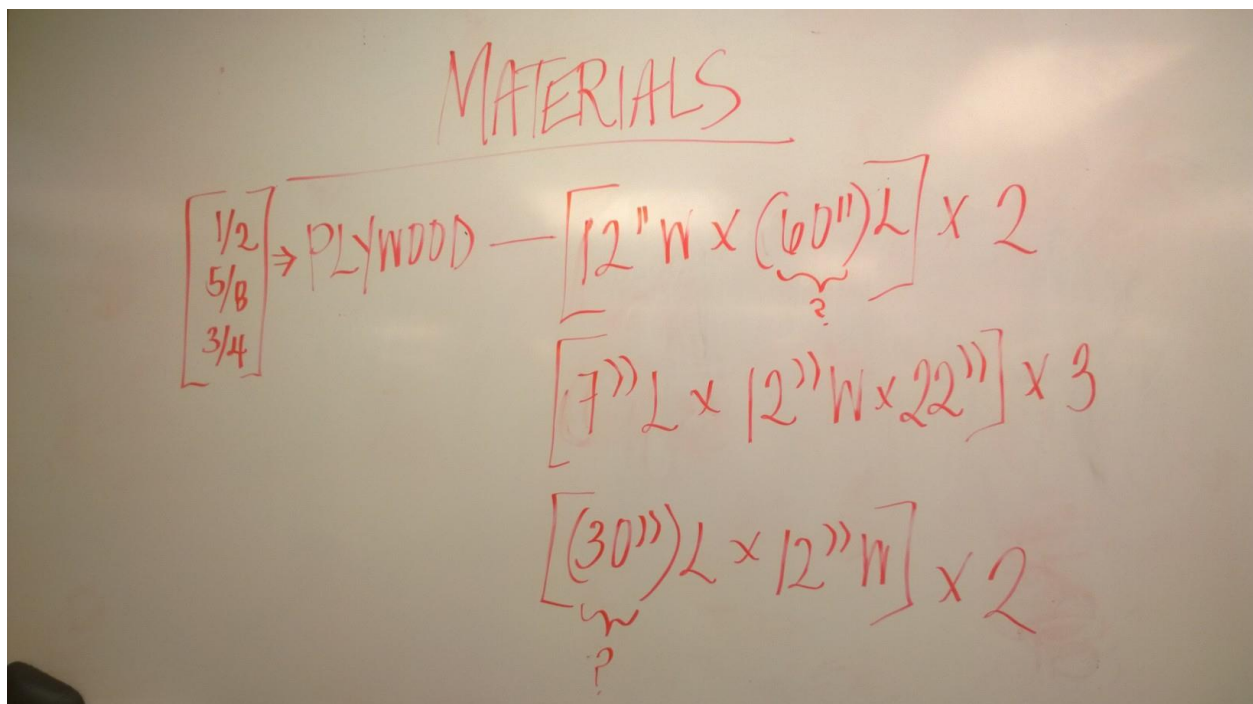 MATERIALS
[1/2 5/8 3/4] → PLYWOOD — [12" W x (60") L] x 2
?
[7" L x 12" W x 22"] x 3
[(30") L x 12" W] x 2
?